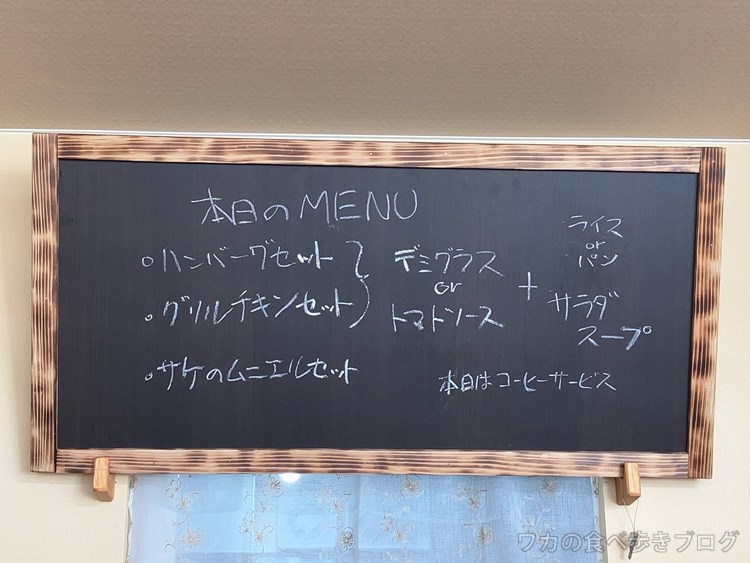 本日のMENU
・ハンバーグセット
・グリルチキンセット
デミグラス
or
トマトソース
+
ライス
or
パン
サラダ
スープ
・サケのムニエルセット
本日はコーヒーサービス
ワカの食べ歩きブログ